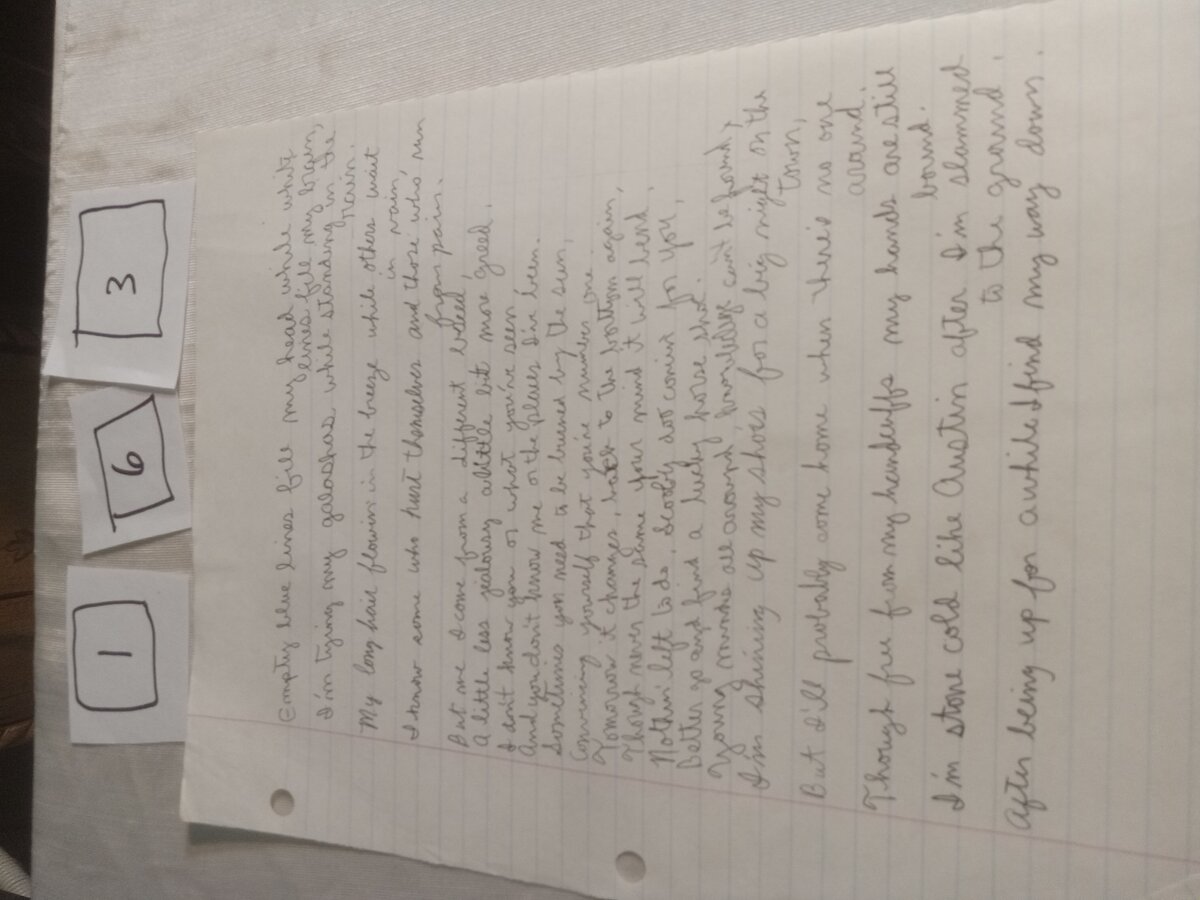 1
6
3
Empty blue lines fill my head while white
lines fill my brain,
I'm tying my galoshas while standing in the
rain.
My long hair flowin in the breeze while others wait
in vain,
I know some who hurt themselves and those who run
from pain.
But me I come from a different breed,
A little less jealousy alittle bit more greed.
I don't know you or what you've seen
And you don't know me or the places I've been.
Sometimes you need to be burned by the sun,
Convincing yourself that you're number one.
Tomorrow it changes, back to the bottom again,
Though never the same your mind it will bend.
Nothin left to do, Scooby doo comin for you,
Better go and find a lucky horse shoe.
Young minds all around knowledge can't be found,
I'm shining up my shoes for a big night on the
town,
But I'll probably come home when there's no one
around.
Though free from my handcuffs my hands are still
bound.
I'm stone cold like Austin after I'm slammed
to the ground,
After being up for awhile I find my way down.